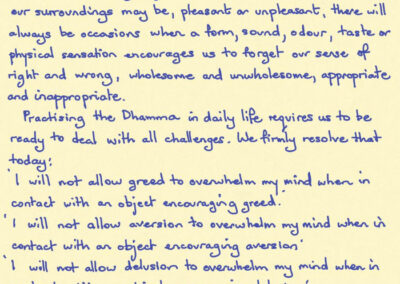 our surroundings may be, pleasant or unpleasant, there will
always be occasions when a form, sound, odour, taste or
physical sensation encourages us to forget our sense of
right and wrong, wholesome and unwholesome, appropriate
and inappropriate.
Practising the Dhamma in daily life requires us to be
ready to deal with all challenges. We firmly resolve that
today:
'I will not allow greed to overwhelm my mind when in
contact with an object encouraging greed.'
'I will not allow aversion to overwhelm my mind when in
contact with an object encouraging aversion'
'I will not allow delusion to overwhelm my mind when in